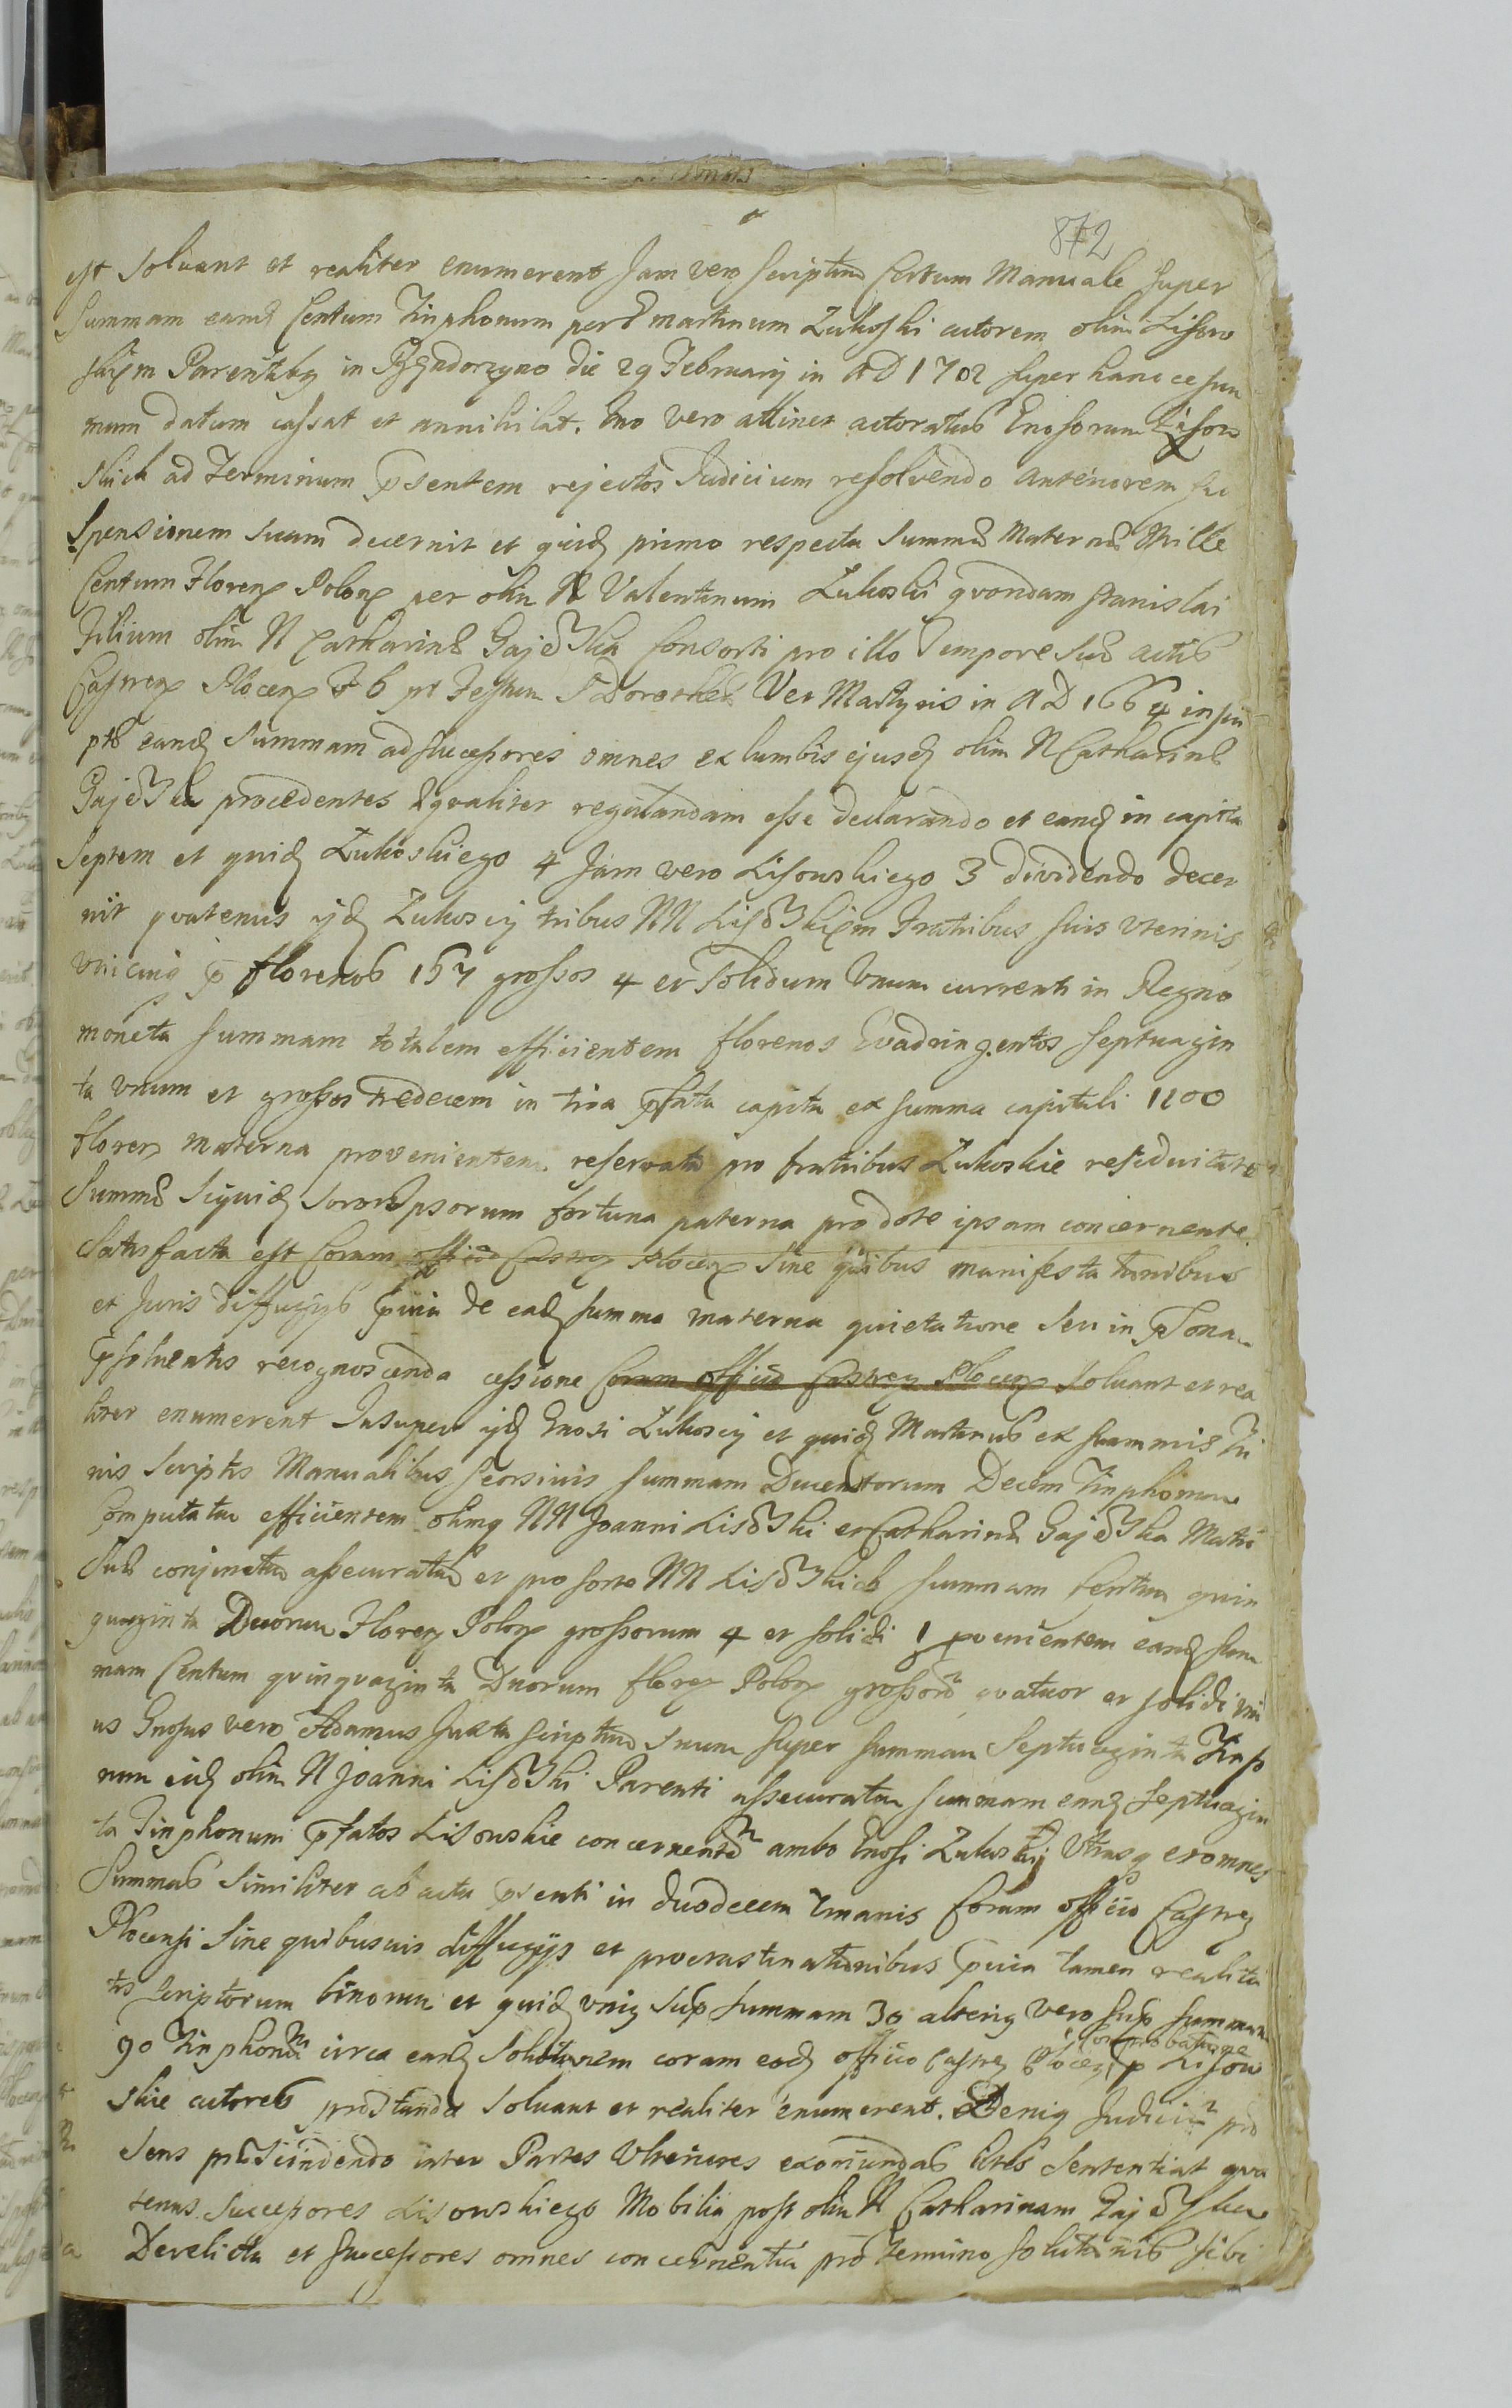 872
est solvant et realiter enumerent Jam vero scriptum Certum Manuale super
Summam eand Centum Tinphonum per d martinum Zukoski actorem olim Lisow
skiem Parentibq in die 29 February in AD 1702 super hancce sum
mam datum cassat et annihilat. vero attinet actoratus Gnosorum Lisow
skich ad Terminum psentem rejectos Judicium resolvendo anteriorem su
spensionem suam decernit et quid primo respectu Summæ Maternæ Mille
Centum Floren Polon per olim N Valentinum Zukoski quondam Stanislai
Filium olim N Catharinæ Gajewska Consorti pro illo Tempore suæ actis
Castren Plocen F 6 pt Festum S Dorotheæ Ver Martyris in AD 1664 inscri
ptæ eand Summam ad successores omnes ex lumbis ejusd olim N Catharinæ
Gajewska procedentes æqualiter regulandam esse declarando et eand in capita
Septem et quid Zukoskiego 4 Jam vero Lisowskiego 3 dividendo decer
nit quatenus ijd Zukoscij tribus NN Lisowskiem Fratribus suis Vterinis
Vnicuiq p florenos 157 grossos 4 et Solidum Vnum currenti in Regno
moneta summam totalem efficientem florenos Quadringentos Septuagin
ta Vnum et grossos tredecem in tria pfata capita ex summa capitali 1100
floren materna provenientem reservata pro fratribus Zukoskie residuitate
Summæ Siquid Soror Ipsorum fortuna paterna pro dote ipsam concernente
Satisfacta est Coram officio Castren Plocen Sine quibus manifesta tionibus
et Juris diffugijs pvia de ead summa materna quietatione seu in psona
psolventis recognoscenda cessione Coram officio Castren Plocen Solvant et rea
liter enumerent Insuper ijd Gnosi Zukoscij et quid Martinus ex summis Bi
nis Scriptis Manualibus seorsivis summam Ducentorum Decem Tinphonum
Computatim efficientem olimq NN Joanni Lisowski et Catharinæ Gajewska Matri
suæ conjunctim assecuratam et pro sorte NN Lisowskich summam Centum quin
quaginta Duorum Floren Polon grossorum 4 et solidi 1 pvenientem eand sum
mam Centum quinquaginta Duorum floren Polon grossorum quatuor et solidi Vni
us Gnosus vero Adamus Juxta scriptum suum super summam Septuaginta Tinp
num eid olim N Joanni Lisowski Parenti assecuratam summam eand Septuagin
ta Tinphonum pfatos Lisowskie concernentem ambo Gnosi Zukoskij Vtrasq et omnes
Summas Similiter ab actu psenti in duodecem Xmanis Coram officio Castren
Plocensi Sine quibusvis diffugijs et procrastinationibus pvia tamen realita
tis Scriptorum binorum et quid vniq sup summam 30 alteriq vero sup summam
90 Tinphonum circa eand Solutionem coram eod officio Castren Plocen p Lisow
comprobatione
skie actores præstanda Solvant et realiter enumerent. Deniq Judicium præ
sens præscindendo inter Partes Vlteriores exoriundas lites Sententiat qua
tenus Successores Lisowskiego Mobilia post olim N Catharinam Gajewska
Derelicta et successores omnes concernentia pro Termino solutionis sibi